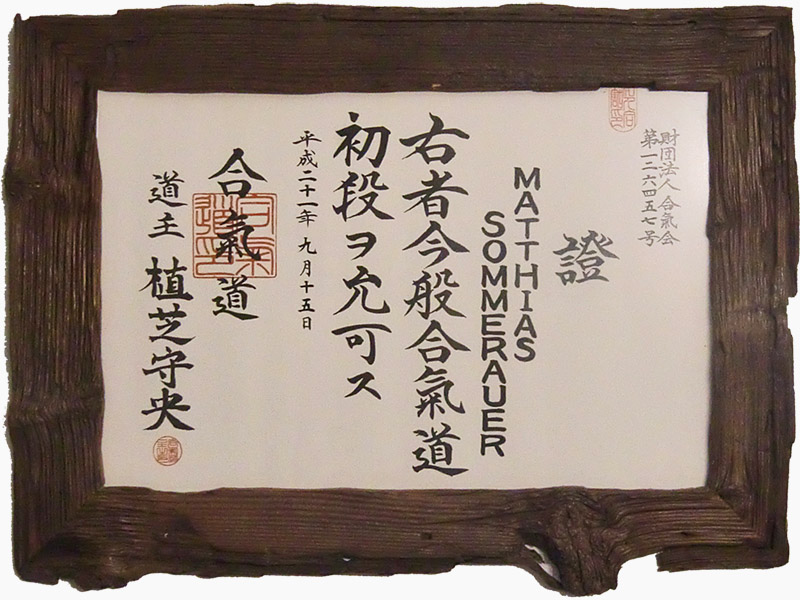 財団法人 合氣会
第一二六四五七号
證
MATTHIAS
SOMMERAUER
右者今般合氣道
初段ヲ允可ス
平成二十一年 九月十五日
合氣道
道主 植芝守央